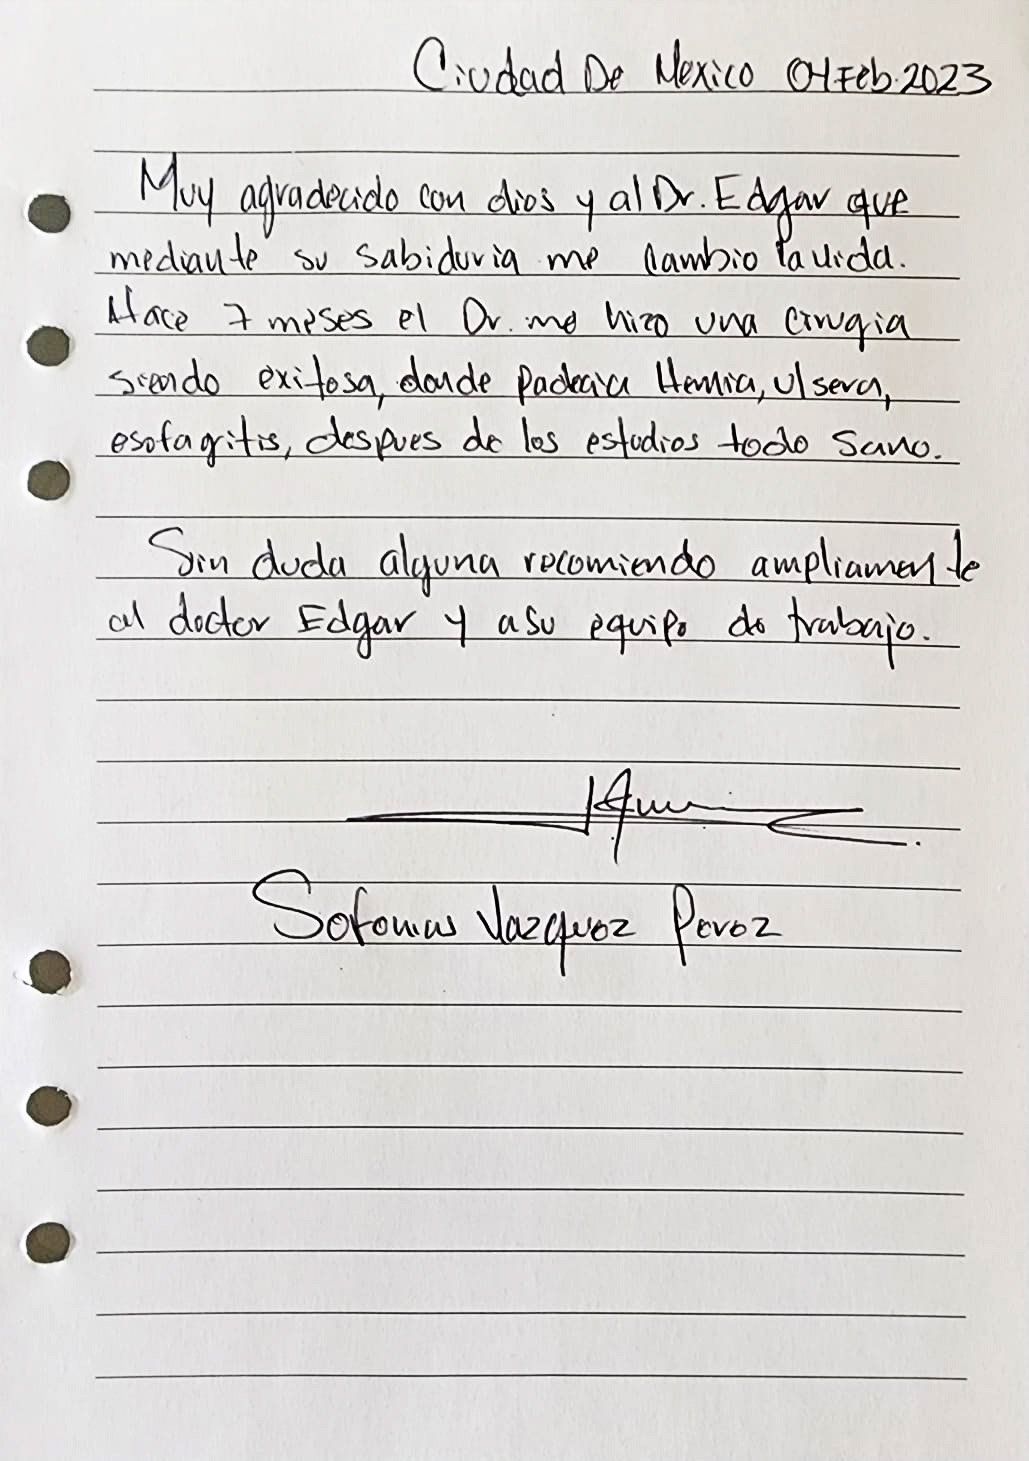 Ciudad De Mexico 04 Feb. 2023
Muy agradecido con dios y al Dr. Edgar que
mediante su sabiduria me cambio la vida.
Hace 7 meses el Dr. me hizo una cirugia
siendo exitosa, donde padecia Hernia, ulsera,
esofagritis, despues de los estudios todo sano.
Sin duda alguna recomiendo ampliamente
al doctor Edgar y a su equipo de trabajo.
Sofonias Vazquez Perez